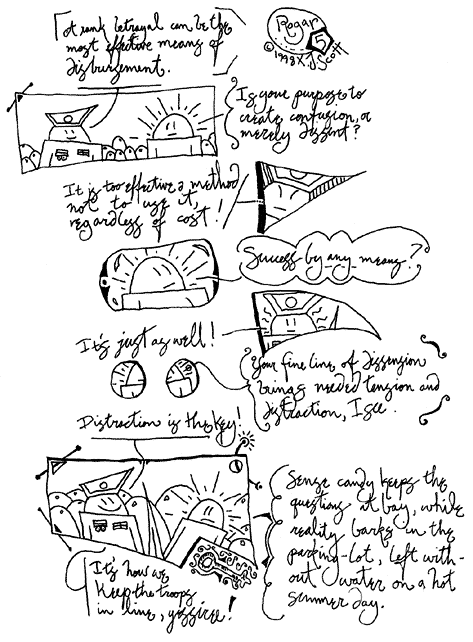 A rank betrayal can be the
most effective means of
disbursement.
Rogar
5
© 1998 X. J Scott
Is your purpose to
create confusion, or
merely dissent?
It is too effective a method
not to use it,
regardless of cost!
Success by any means?
It's just as well!
Your fine line of dissension
brings needed tension and
distraction, I see.
Distraction is the key!
Sense candy keeps the
questions at bay, while
reality barks in the
parking-lot, left with-
out water on a hot
summer day.
It's how we
keep the troops
in line, yessiree!